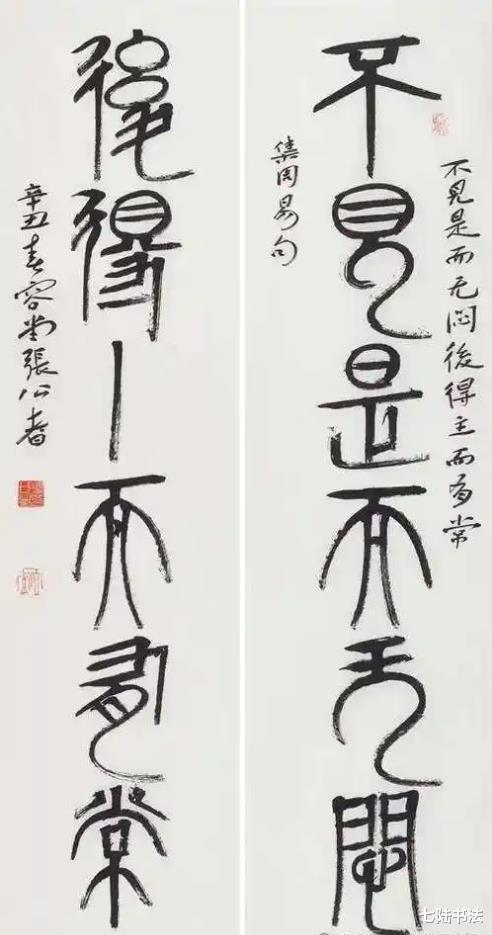 不見是而无悶後得主而有常
不見是而无悶
集周易句
後得丨而有常
辛丑春容堂張公者
七陆书法